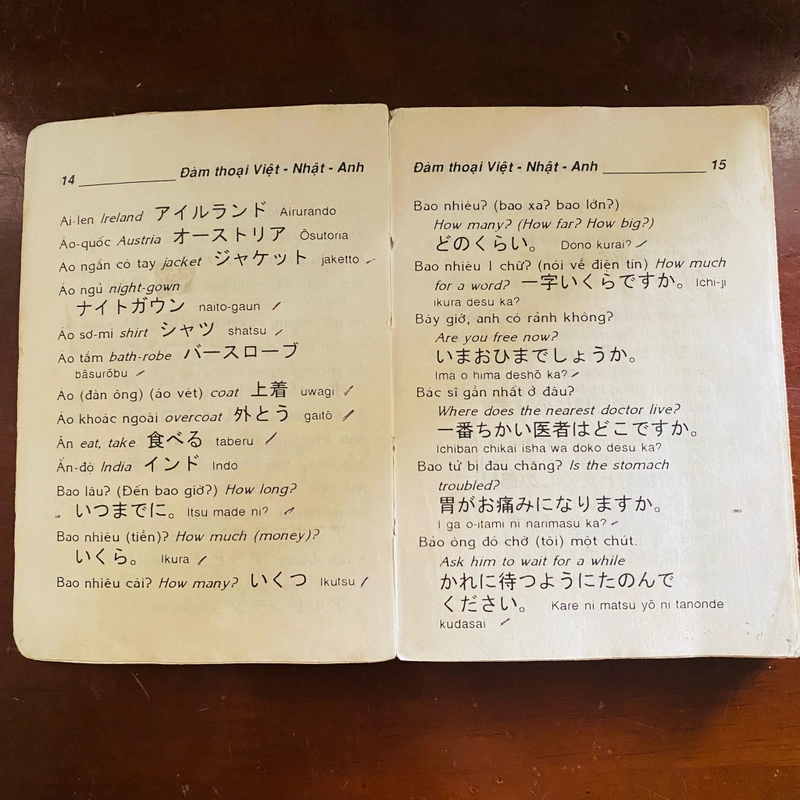 14 Đàm thoại Việt - Nhật - Anh
Ai-len Ireland アイルランド Airurando
Áo-quốc Austria オーストリア Ōsutoria
Áo ngắn có tay jacket ジャケット jaketto
Áo ngủ night-gown
ナイトガウン naito-gaun
Áo sơ-mi shirt シャツ shatsu
Áo tắm bath-robe バースローブ
bāsurōbu
Áo (đàn ông) (áo vét) coat 上着 uwagi
Áo khoác ngoài overcoat 外とう gaitō
Ăn eat, take 食べる taberu
Ấn-độ India インド Indo
Bao lâu? (Đến bao giờ?) How long?
いつまでに。 Itsu made ni?
Bao nhiêu (tiền)? How much (money)?
いくら。 Ikura
Bao nhiêu cái? How many? いくつ Ikutsu
Đàm thoại Việt - Nhật - Anh 15
Bao nhiêu? (bao xa? bao lớn?)
How many? (How far? How big?)
どのくらい。 Dono kurai?
Bao nhiêu 1 chữ? (nói về điện tín) How much
for a word? 一字いくらですか。 Ichi-ji
ikura desu ka?
Bây giờ, anh có rảnh không?
Are you free now?
いまおひまでしょうか。
Ima o hima deshō ka?
Bác sĩ gần nhất ở đâu?
Where does the nearest doctor live?
一番ちかい医者はどこですか。
Ichiban chikai isha wa doko desu ka?
Bao tử bị đau chăng? Is the stomach
troubled?
胃がお痛みになりますか。
I ga o-itami ni narimasu ka?
Bảo ông đó chờ (tôi) một chút.
Ask him to wait for a while
かれに待つようにたのんで
ください。 Kare ni matsu yō ni tanonde
kudasai